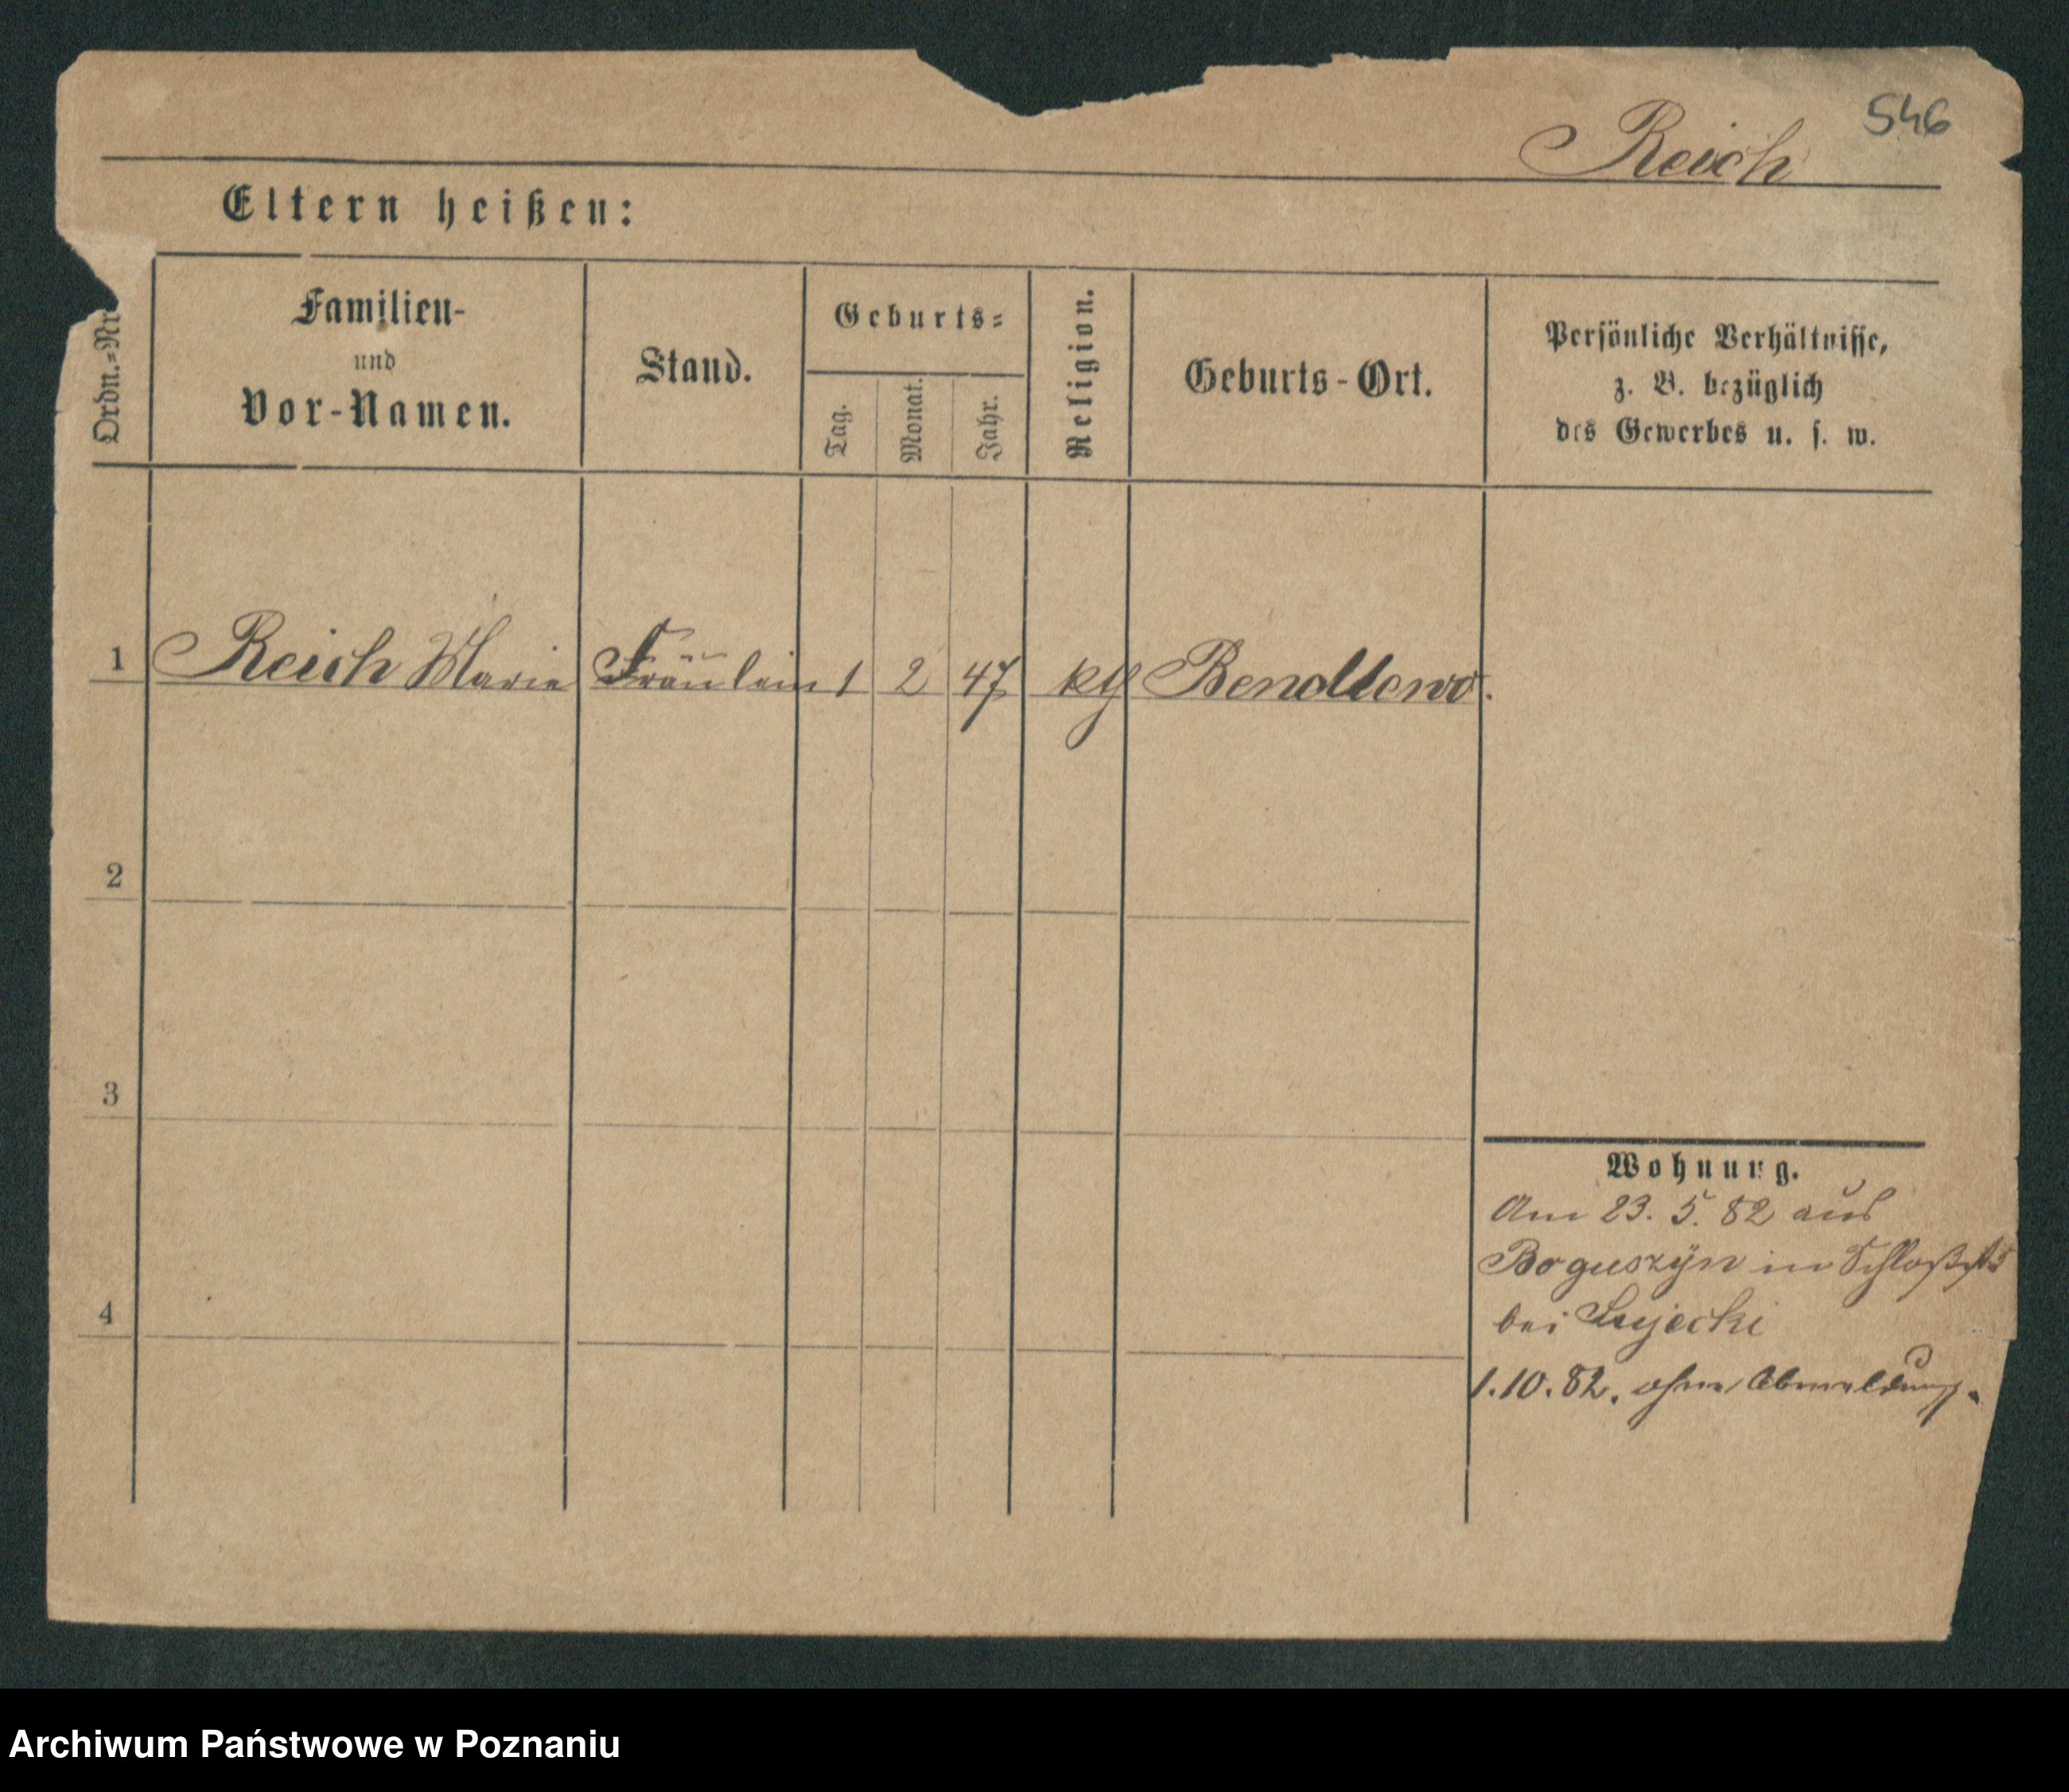 546
Reich
Eltern heißen:
Ordn.=Nr.
Familien-
und
Vor-Namen.
Stand.
Geburts=
Tag.
Monat.
Jahr.
Religion.
Geburts-Ort.
Persönliche Verhältnisse,
z. B. bezüglich
des Gewerbes u. s. w.
1 Reich Marie Fräulein 1 2 47 kth Bendlewo.
2
3
4
Wohnung.
Am 23. 5. 82 aus
Boguszÿn in
bei
1.10.82. ohne Abmeldung.
Archiwum Państwowe w Poznaniu